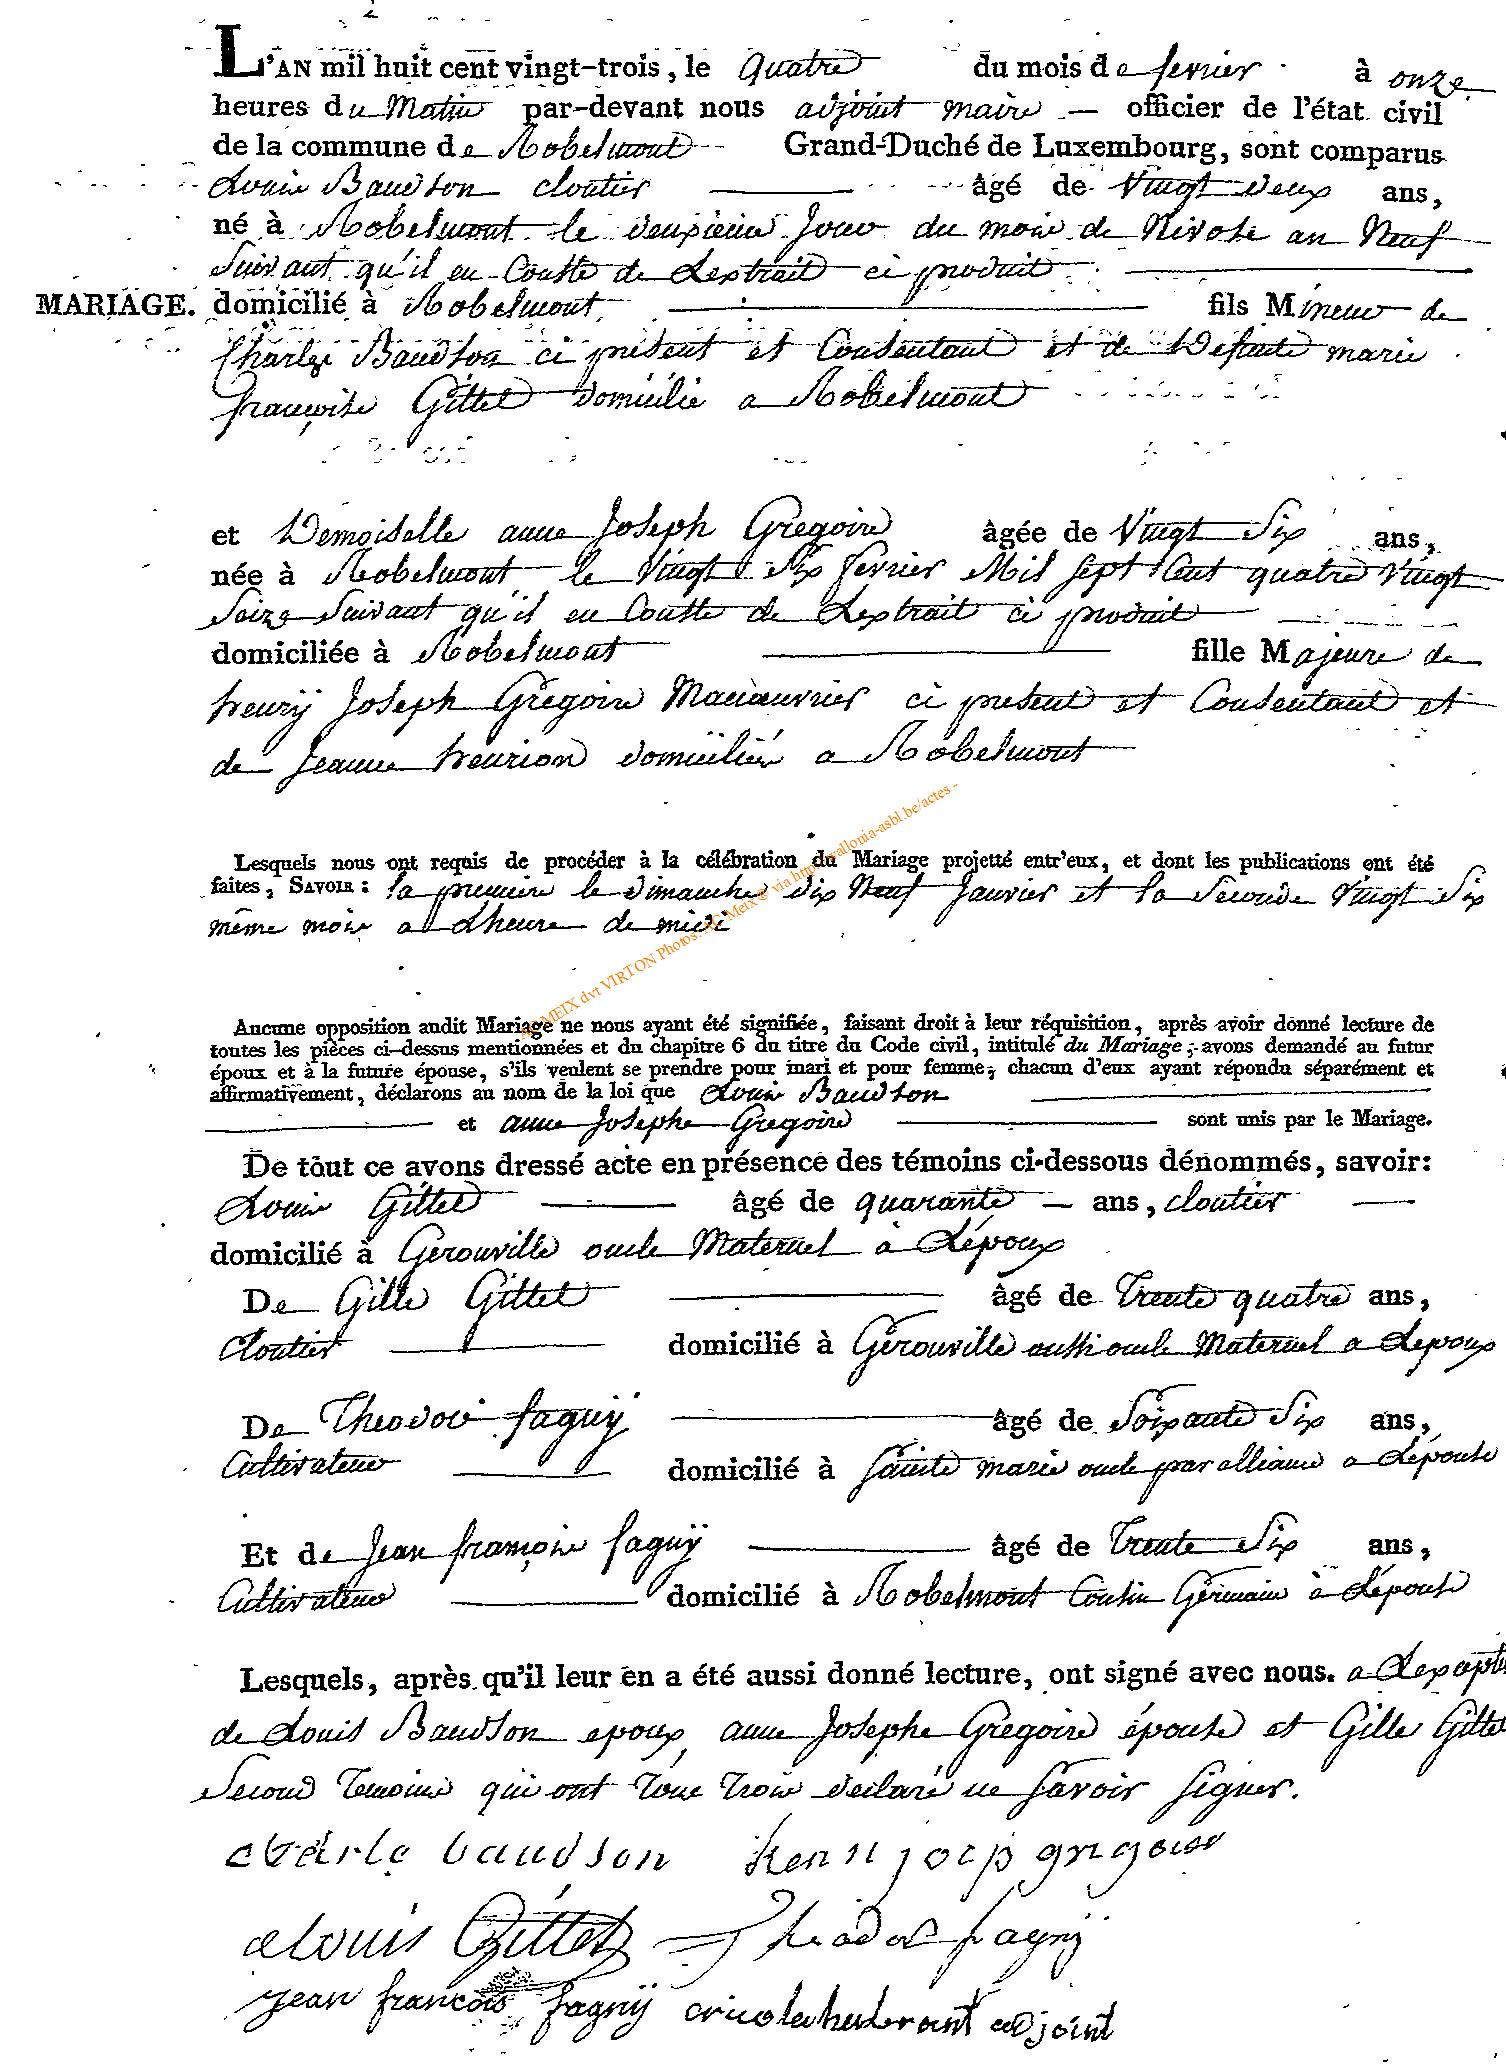 L'AN mil huit cent vingt-trois, le quatre du mois de fevrier à onze
heures du Matin par-devant nous adjoint maire — officier de l'état civil
de la commune de Robelmont Grand-Duché de Luxembourg, sont comparus
Louis Baudson cloutier âgé de Vingt deux ans,
né à Robelmont le deuxieme Jour du mois de Nivose an Neuf
Suivant qu'il en Conste de Lextrait ci produit
MARIAGE. domicilié à Robelmont fils Mineur de
Charle Baudson ci present et Consentant et de Defunte marie
françoise Gittel domicilié a Robelmont
et Demoiselle anne Joseph Gregoire âgée de Vingt Six ans,
née à Robelmont le Vingt Six fevrier Mil Sept Cent quatre Vingt
Seize Suivant qu'il en Conste de Lextrait ci produit
domiciliée à Robelmont fille Majeure de
henrÿ Joseph Gregoire Manoeuvrier ci present et Consentant et
de Jeanne henrion domiciliés a Robelmont
Lesquels nous ont requis de procéder à la célébration du Mariage projetté entr'eux, et dont les publications ont été
faites, SAVOIR : la premiere le dimanche dix Neuf Janvier et la Seconde Vingt Six
même mois a Lheure de midi
AC MEIX dvt VIRTON Photos: Meix © via http wallonia-asbl.be/actes -
Aucune opposition audit Mariage ne nous ayant été signifiée, faisant droit à leur réquisition, après avoir donné lecture de
toutes les pièces ci-dessus mentionnées et du chapitre 6 du titre du Code civil, intitulé du Mariage, avons demandé au futur
époux et à la future épouse, s'ils veulent se prendre pour mari et pour femme; chacun d'eux ayant répondu séparément et
affirmativement, déclarons au nom de la loi que Louis Baudson
et anne Josephe Gregoire sont unis par le Mariage.
De tout ce avons dressé acte en présence des témoins ci-dessous dénommés, savoir:
Louis Gittel âgé de quarante — ans, cloutier
domicilié à Gerouville oncle Maternel à Lépoux
De Gille Gittel âgé de Trente quatre ans,
Cloutier domicilié à Gérouville aussi oncle Maternel a Lépoux
De Theodore fagnÿ âgé de Soixante Six ans,
Cultivateur domicilié à Sainte marie oncle par alliance a Lépouse
Et de Jean françois fagnÿ âgé de Trente Six ans,
Cultivateur domicilié à Robelmont Cousin Germain à Lépouse
Lesquels, après qu'il leur en a été aussi donné lecture, ont signé avec nous. a Lexcption
de Louis Baudson epoux, anne Josephe Gregoire épouse et Gille Gittel
Second Temoins qui ont Tous Trois declaré ne Savoir Signer.
charle baudson henri josep grigoire
Louis Gittel Theodor fagnÿ
jean francois fagnÿ adjoint